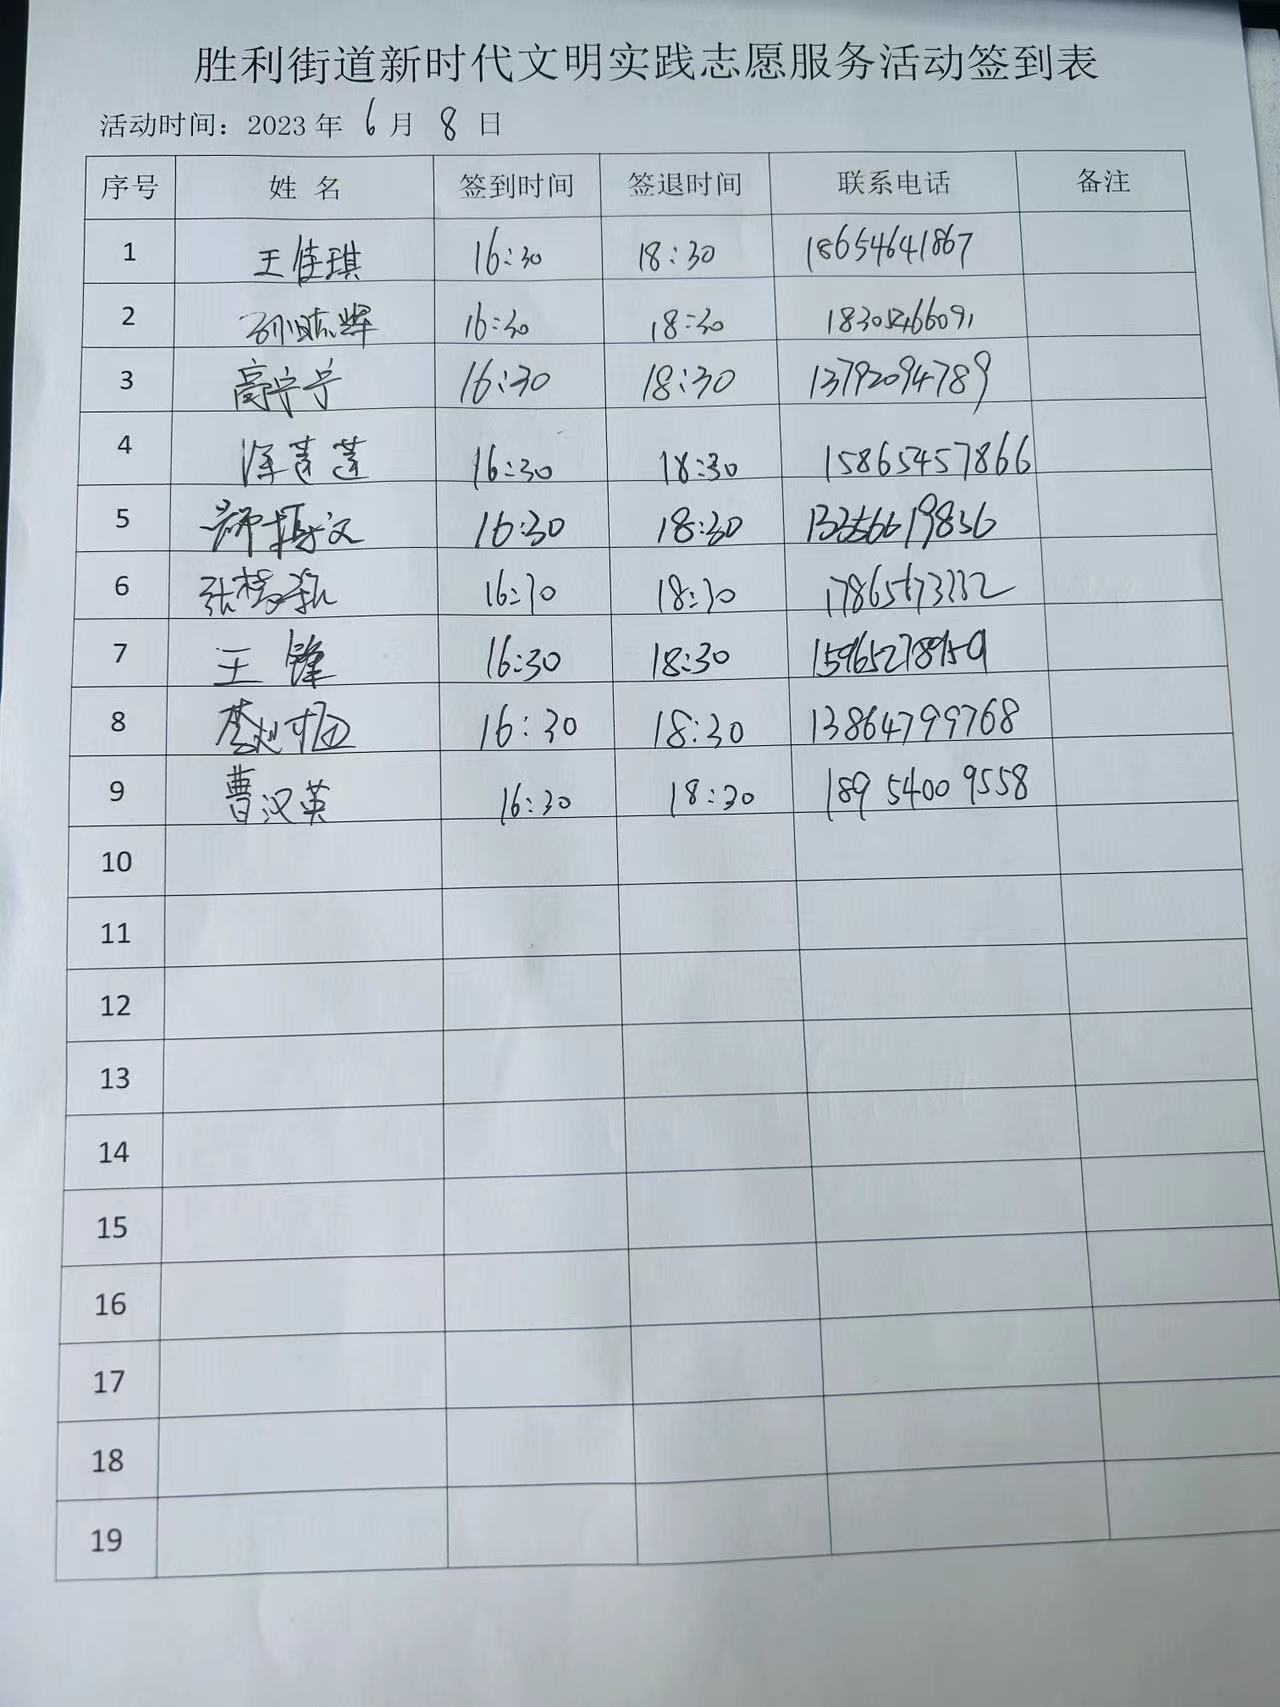 胜利街道新时代文明实践志愿服务活动签到表
活动时间：2023 年 6 月 8 日
序号 姓 名 签到时间 签退时间 联系电话 备注
1 王佳琪 16:30 18:30 18654641867
2 16:30 18:30 18305466091
3 高宁宁 16:30 18:30 13792094789
4 16:30 18:30 15865457866
5 16:30 18:30
6 16:30 18:30
7 王锋 16:30 18:30
8 16:30 18:30 13864799768
9 曹汉英 16:30 18:30 189 5400 9558
10
11
12
13
14
15
16
17
18
19